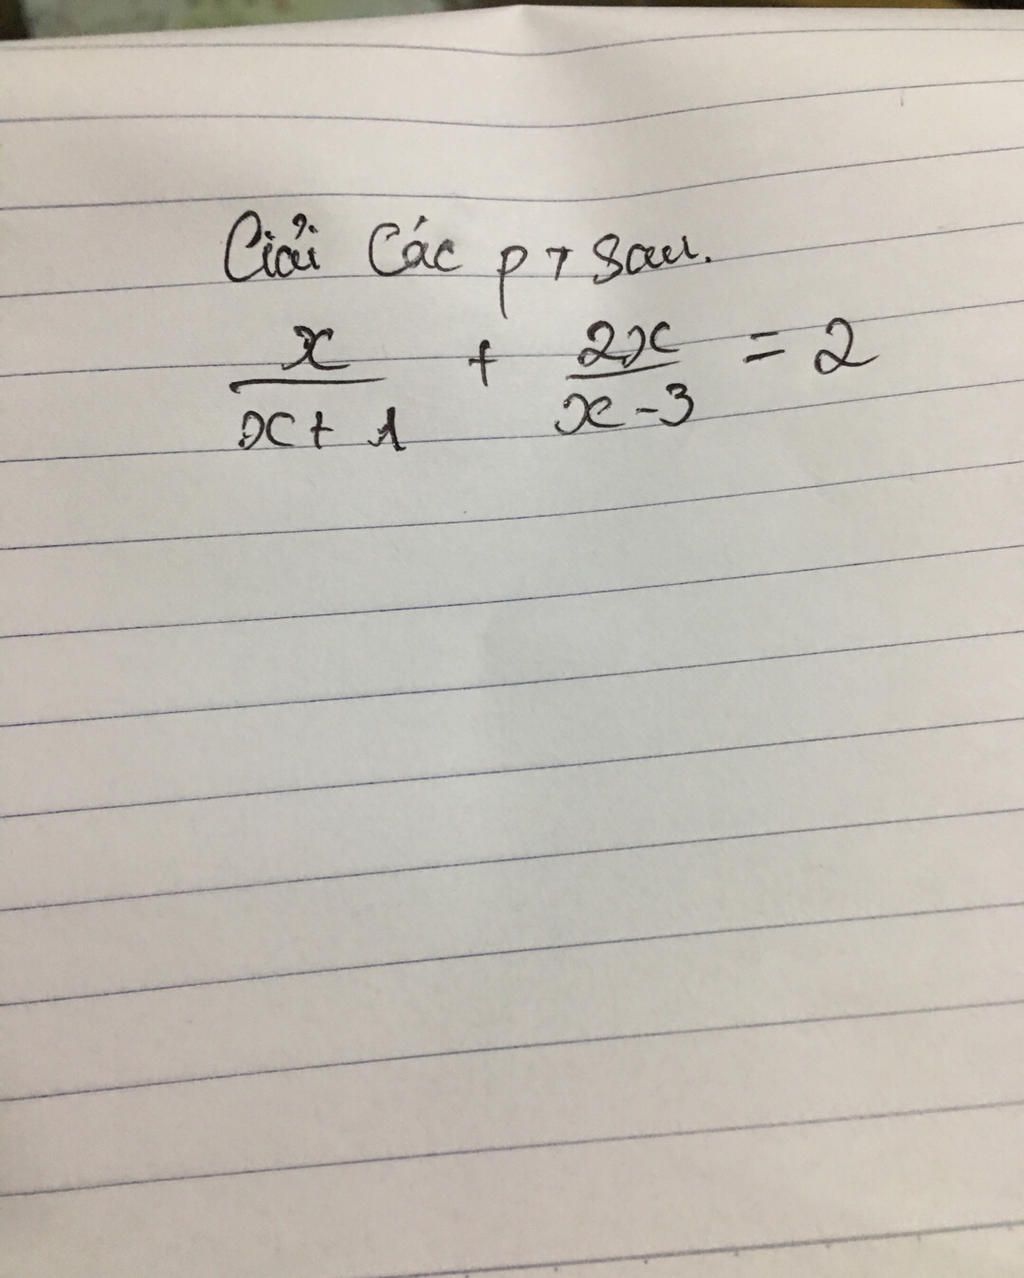 Giải Các pt sau.
x/(x+1) + 2x/(x-3) = 2